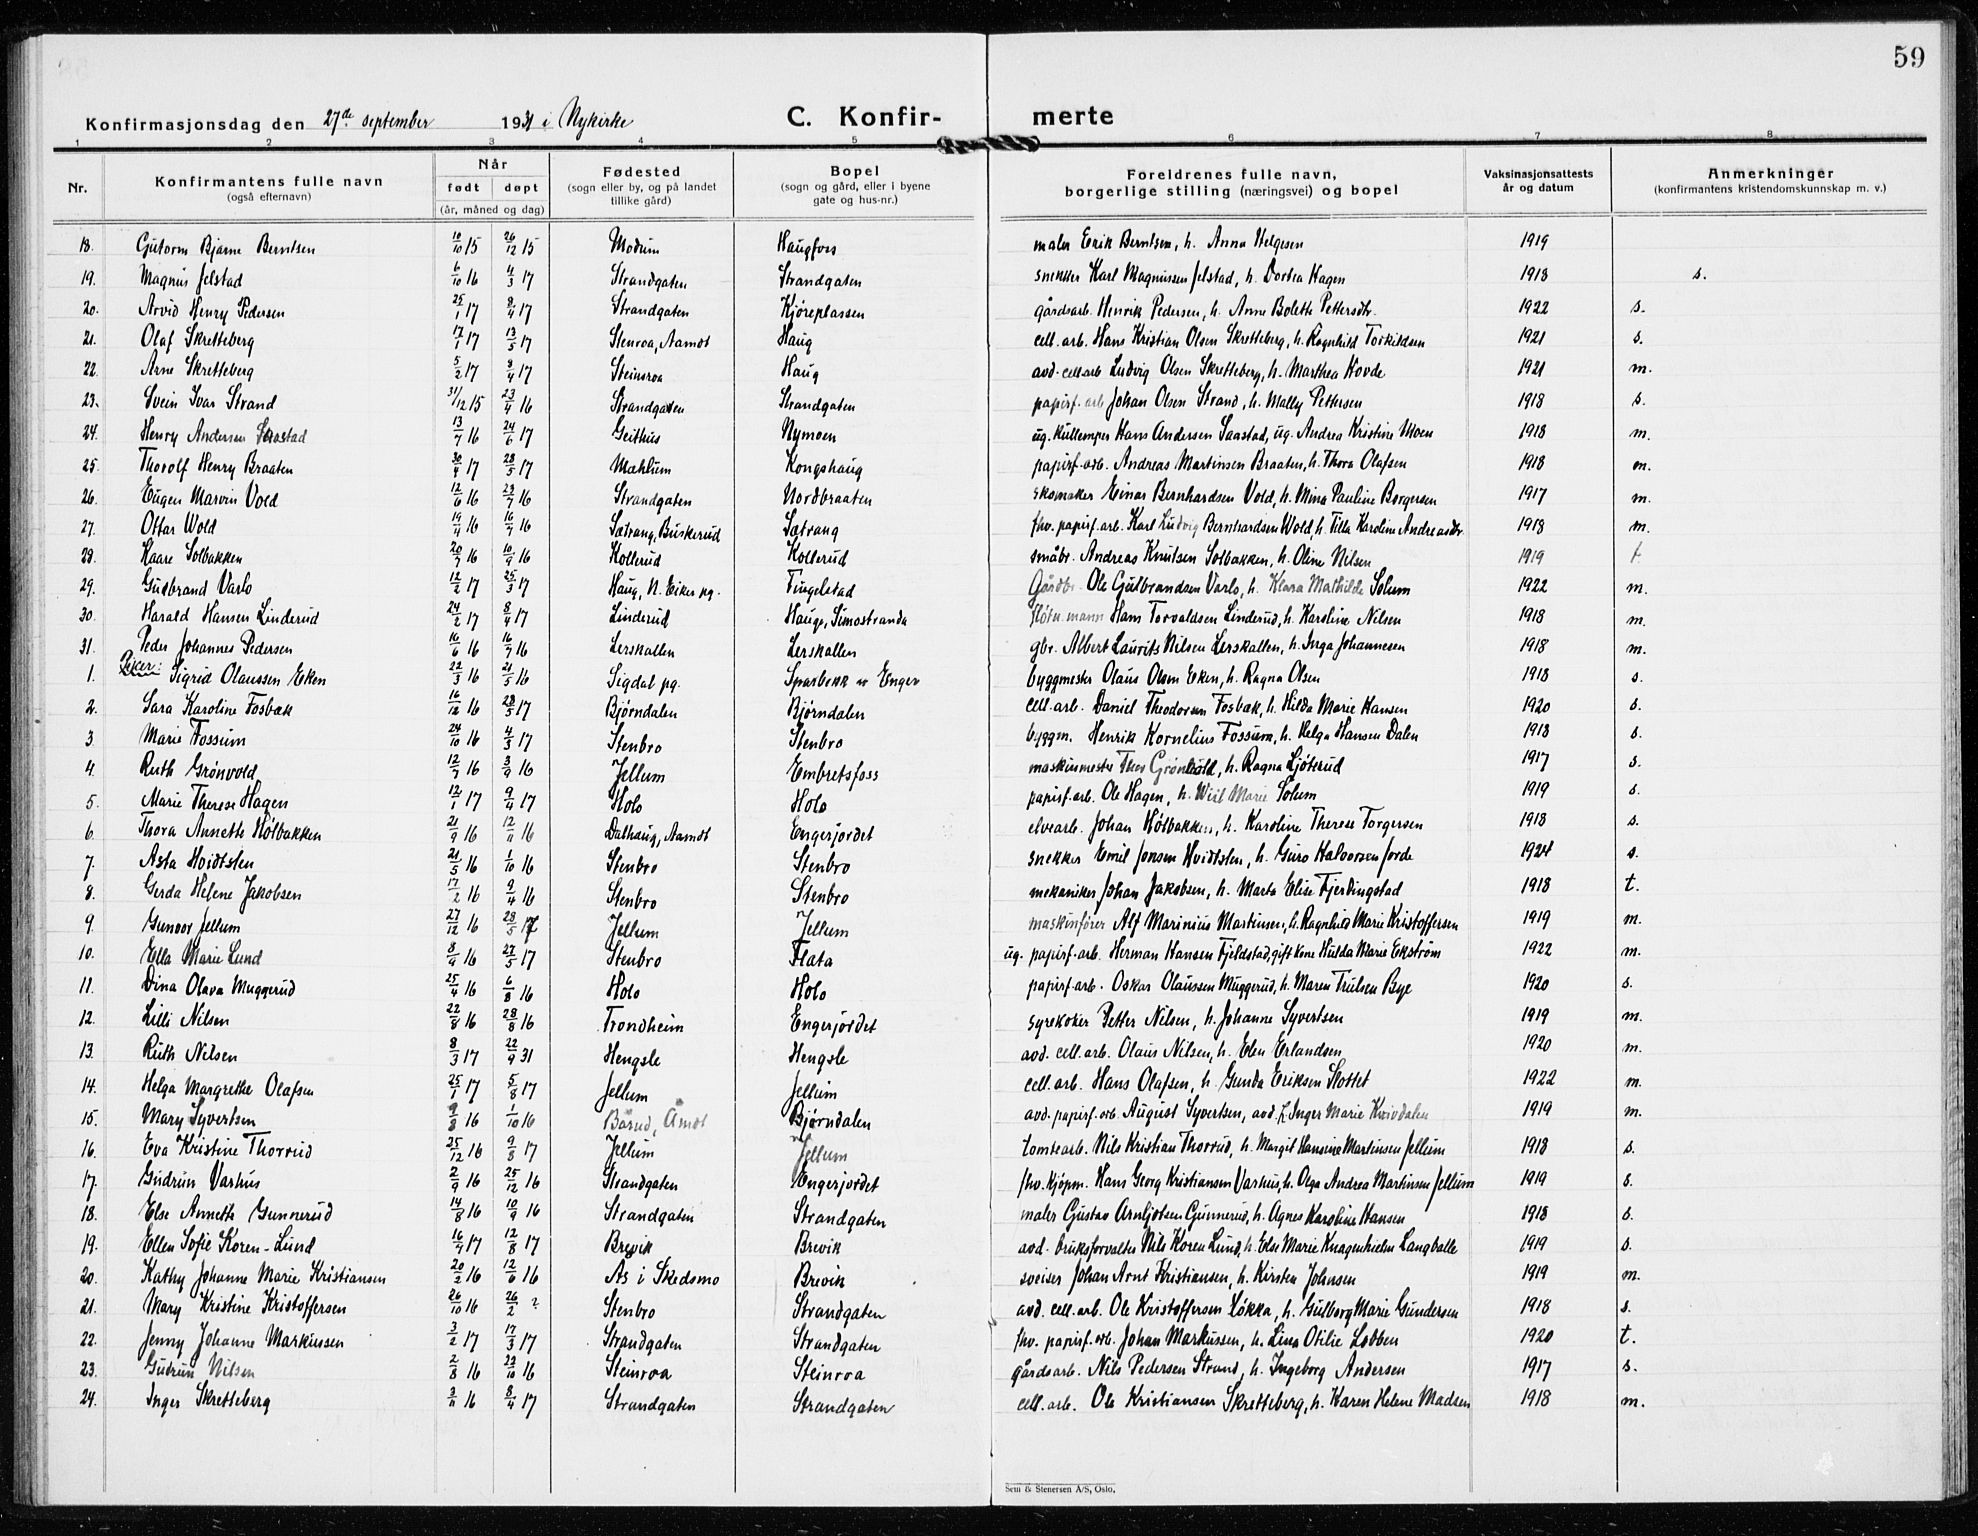 59
Konfirmasjonsdag den 27de september 1931 i Nykirke C. Konfir- merte
1 2 3 4 5 6 7 8
Nr. Konfirmantens fulle navn (også efternavn) Når født døpt (år, måned og dag) Fødested (sogn eller by, og på landet tillike gård) Bopel (sogn og gård, eller i byene gate og hus-nr.) Foreldrenes fulle navn, borgerlige stilling (næringsvei) og bopel Vaksinasjonsattests år og datum Anmerkninger (konfirmantens kristendomskunnskap m. v.)
18. Gutorm Bjarne Berntsen 10/10 15 26/12 15 Modum Haugfoss maler Erik Berntsen, h. Anna Helgesen 1919
19. Magnus Jelstad 6/10 16 4/3 17 Strandgaten Strandgaten snekker Karl Magnussen Jelstad, h. Dortea Hagen 1918 s.
20. Arvid Henry Pedersen 25/1 17 8/4 17 Strandgaten Kjøreplassen gårdsarb. Henrik Pedersen, h. Anne Bolette Pettersdtr. 1922 s.
21. Olaf Skretteberg 17/1 17 13/5 17 Stenroa, Aamot Haug cell. arb. Hans Kristian Olsen Skretteberg, h. Ragnhild Torkildsen 1921 s.
22. Arne Skretteberg 5/2 17 8/4 17 Steinsroa Haug avd. cell. arb. Ludvig Olsen Skretteberg, h. Marthea Hovde 1921 m.
23. Svein Ivar Strand 31/12 15 23/4 16 Strandgaten Strandgaten papirf. arb. Johan Olsen Strand, h. Mally Pettersen 1918 s.
24. Henry Andersen Saastad 13/7 16 24/6 17 Geithus Nymoen ug. kullemper Hans Andersen Saastad, ug. Andrea Kristine Moen 1918 m.
25. Thorolf Henry Braaten 30/4 17 28/5 17 Mæhlum Kongshaug papirf. arb. Andreas Martinsen Braaten, h. Thora Olafsen 1918 m.
26. Eugen Marvin Vold 12/6 16 23/7 16 Strandgaten Nordbraaten skomaker Einar Bernhardsen Vold, h. Mina Pauline Borgersen 1917 m.
27. Ottar Wold 19/4 16 16/7 16 Sætrang, Buskerud Sætrang fhv. papirf. arb. Karl Ludvig Bernhardsen Wold, h. Tilla Karoline Andreasdtr. 1918 m.
28. Kaare Solbakken 20/7 16 10/9 16 Kollerud Kollerud småbr. Andreas Knutsen Solbakken, h. Oline Nilsen 1919 t.
29. Gudbrand Varlo 12/2 17 25/3 17 Haug, N. Eiker pg. Tingelstad Gårdbr. Ole Gulbrandsen Varlo, h. Klara Mathilde Solum 1922 m.
30. Harald Hansen Linderud 24/2 17 8/4 17 Linderud Hauge, Simostranda fløtn. mann Hans Torvaldsen Linderud, h. Karoline Nilsen 1918 m.
31. Peder Johannes Pedersen 16/6 16 16/7 16 Lerskallen Lerskallen gbr. Albert Laurits Nilsen Lerskallen, h. Inga Johannesen 1918 m.
Piker:
1. Sigrid Olaussen Eken 22/3 16 21/5 16 Sigdal pg. Enger byggmester Olaus Olsen Eken, h. Ragna Olsen 1918 s.
2. Sara Karoline Fosbæk 16/12 16 28/5 17 Bjørndalen Bjørndalen cell. arb. Daniel Theodorsen Fosbæk, h. Hilda Marie Hansen 1920 s.
3. Marie Fossum 24/10 16 4/3 17 Stenbro Stenbro byggm. Henrik Kornelius Fossum, h. Helga Hansen Dalen 1918 s.
4. Ruth Grønvold 12/7 16 3/9 16 Jellum Embretsfoss maskinmester Thor Grønvold, h. Ragna Ljøterud 1917 s.
5. Marie Therese Hagen 12/1 17 9/4 17 Holo Holo papirf. arb. Ole Hagen, h. Marie Solum 1919 s.
6. Thora Annette Hølbakken 21/9 16 12/11 16 Dalhaug, Aamot Engerjordet elvearb. Johan Hølbakken, h. Karoline Therese Torgersen 1918 s.
7. Asta Hvidtsten 21/5 16 1/10 16 Stenbro Stenbro snekker Emil Jonsen Hvidtsten, h. Guro Halvorsen Jorde 1924 s.
8. Gerda Helene Jakobsen 17/2 16 9/4 16 Stenbro Stenbro mekaniker Johan Jakobsen, h. Marta Elise Fjerdingstad 1918 t.
9. Gunvor Jellum 27/12 16 28/5 17 Jellum Jellum maskinfører Alf Marinius Martinsen, h. Ragnhild Marie Kristoffersen 1919 m.
10. Ella Marie Lund 8/9 16 27/5 17 Stenbro Flata ug. papirf. arb. Herman Hansen Fjeldstad, gift kone Hulda Marie Ekström 1922 m.
11. Dina Olava Muggerud 25/4 16 6/8 16 Holo Holo papirf. arb. Oskar Olaussen Muggerud, h. Maren Trulsen Bye 1920 s.
12. Lilli Nilsen 22/8 16 28/8 16 Trondheim Engerjordet syrekoker Petter Nilsen, h. Johanne Syvertsen 1919 m.
13. Ruth Nilsen 8/3 17 22/9 31 Hengsle Hengsle avd. cell. arb. Olaus Nilsen, h. Elen Erlandsen 1920 m.
14. Helga Margrethe Olafsen 25/1 17 5/8 17 Jellum Jellum cell. arb. Hans Olafsen, h. Gunda Eriksen Slottet 1922 m.
15. Mary Syvertsen 9/8 16 1/10 16 Bårud, Åmot Bjørndalen avd. papirf. arb. August Syvertsen, avd. h. Inger Marie Kvivdalen 1919 m.
16. Eva Kristine Thorrud 25/12 16 9/8 17 Jellum Jellum tomtearb. Nils Kristian Thorrud, h. Margit Hansine Martinsen Jellum 1918 s.
17. Gudrun Varhus 2/9 16 25/12 16 Strandgaten Engerjordet fhv. kjøpm. Hans Georg Kristiansen Varhus, h. Olga Andrea Martinsen Jellum 1919 s.
18. Else Annette Gunnerud 14/8 16 10/9 16 Strandgaten Strandgaten maler Gustav Arnljotsen Gunnerud, h. Agnes Karoline Hansen 1918 s.
19. Ellen Sofie Koren-Lund 16/4 17 12/8 17 Brevik Brevik avd. bruksforvalter Nils Koren Lund, h. Else Marie Knagenhielm Langballe 1919 s.
20. Kathy Johanne Marie Kristiansen 20/2 16 12/6 16 Ås i Skedsmo Brevik sveiser Johan Arnt Kristiansen, h. Kirsten Johnsen 1919 m.
21. Mary Kristine Kristoffersen 26/10 16 26/2 ? Stenbro Strandgaten avd. cell. arb. Ole Kristoffersen Løkka, h. Gulborg Marie Gundersen 1918 s.
22. Jenny Johanne Markussen 3/2 17 17/3 17 Strandgaten Strandgaten fhv. papirf. arb. Johan Markussen, h. Lina Otilie Lobben 1920 t.
23. Gudrun Nilsen 2/8 16 22/10 16 Steinroa Steinroa gårdsarb. Nils Pedersen Strand, h. Ingeborg Andersen 1917 s.
24. Inger Skretteberg 3/11 16 8/4 17 Strandgaten Strandgaten cell. arb. Ole Kristiansen Skretteberg, h. Karen Helene Madsen 1918 m.
Sem & Stenersen A/S, Oslo.